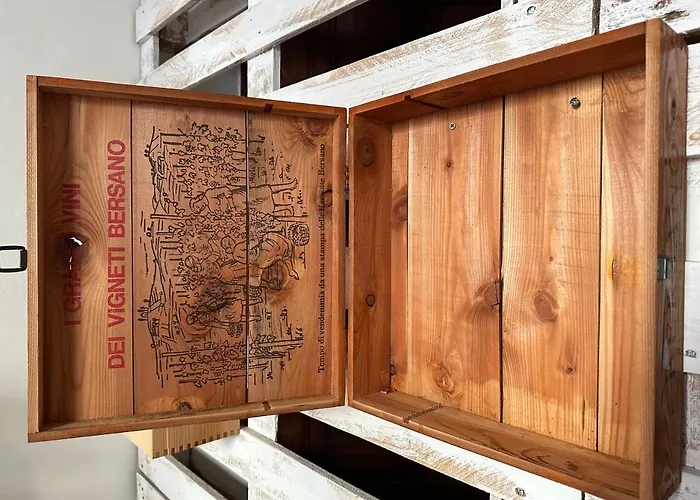 I GRA VINI
DEI VIGNETI BERSANO
Tempo di vendemmia da una stampa delle Bersano